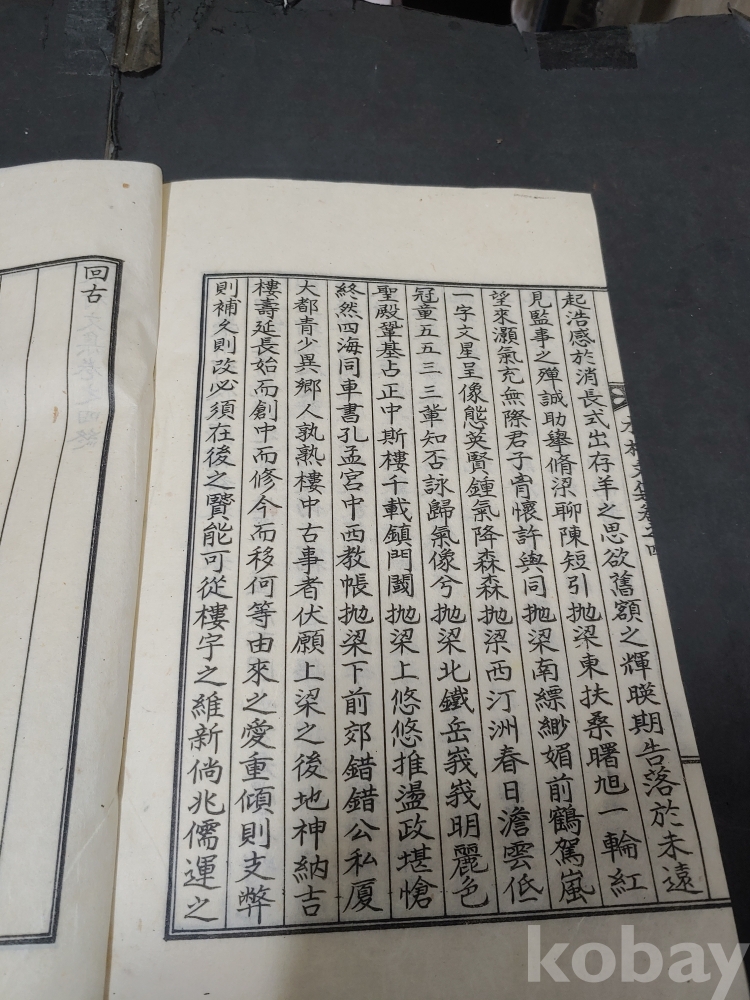 起浩感於消長式出存羊之思欲舊額之輝暎期告落於未遠
見監事之殫誠助擧脩梁聊陳短引抛梁東扶桑曙旭一輪紅
望來灝氣充無際君子胷懷許與同抛梁南縹緲媚前鶴駕嵐
一字文星呈像態英賢鍾氣降森森抛梁西汀洲春日澹雲低
冠童五五三三輩知否詠歸氣像兮抛梁北鐵岳峩峩明麗色
聖殿鞏基占正中斯樓千載鎭門閾抛梁上悠悠推盪政堪愴
終然四海同車書孔孟宮中西教帳抛梁下前郊錯錯公私厦
大都青少異鄉人孰熟樓中古事者伏願上梁之後地神納吉
樓壽延長始而創中而修今而移何等由來之愛重傾則支弊
則補久則改必須在後之賢能可從樓宇之維新倘兆儒運之
回古
文集卷之四終
kobay